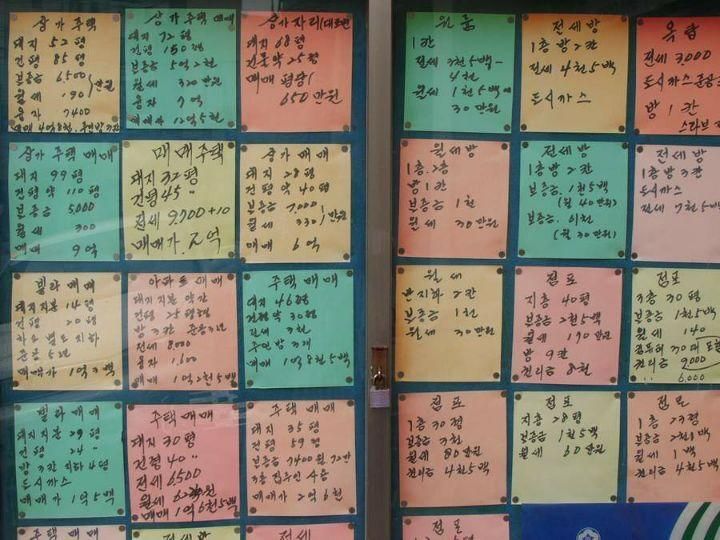 상가 주택
대지 52평
건평 85평
보증금 6,500
월세 190
만원
융자 7400
상가 주택 매매
대지 72평
건평 150평
보증금 5억2천
월세 320만원
융자 7억
매매가 12억5천
상가자리(대로변
대지 68평
건물약 25평
매매 평당
650만원
원룸
1칸
전세 3천5백~
4천
월세 1천5백에
30만원
전세방
1층 방2칸
전세 4천5백
도시까스
옥탑
전세 3,000
도시까스
방 1칸
상가 주택 매매
대지 99평
건평 약 110평
보증금 5,000
월세 300
매매 9억
매매주택
대지 32평
건평 45〃
전세 9,700+10
매매가
상가 매매
대지 28평
건평 약 40평
보증금 7,000
월세 330
만원
매매 6억
월세방
1층.2층
방1칸
보증금 1천
월세 30만원
전세방
1층 방2칸
보증금. 1천5백
(월 40만원)
보증금. 이천
(월 30만원)
전세방
1층 방3칸
도시까스
전세 7천5백
빌라 매매
대지지분 14평
건평 20평
매매가 1억3백
아파트 매매
대지지분 약간
건평 25평형
방3칸
전세 8,000
융자 1,600
매매 1억2천5백
주택 매매
대지 46평
건평약 30평
전세 3천
주인방 3개
매매 1억8천5백
월세
반지하 2칸
보증금 1천
월세 30만원
점포
지층 40평
보증금 2천5백
월세 190만원
방 9칸
권리금 8천
점포
3층 30평
보증금 1천5백
월세 140
컴퓨터 30대 포함
권리금 9,000
〃 6,000
빌라매매
대지지분 29평
건평 24〃
방3칸 지하4평
도시까스
매매가 1억5백
주택매매
대지 30평
건평 40〃
전세 6500
매매 1억6천5백
주택 매매
대지 35평
건평 59평
보증금 7400 월72만
3층 전주인 사용
매매가 2억6천
점포
1층 30평
보증금 3천
월세 80만원
권리금 4천5백
점포
지층 28평
보증금 1천5백
월세 60만원
점포
1층 23평
보증금 2천1백
월세 1백
권리금 4천5백
주택 매매
전세
점포